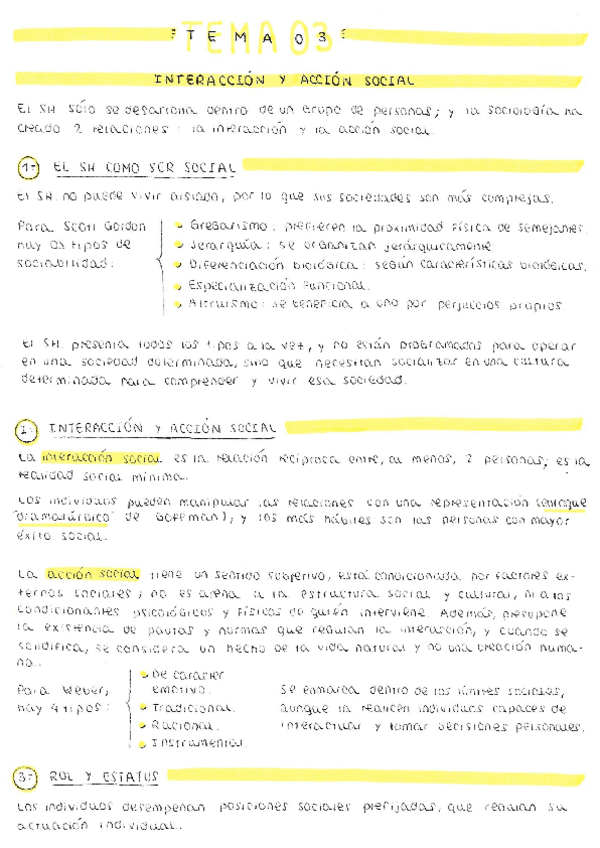 TEMA 03
INTERACCIÓN Y ACCIÓN SOCIAL
El SH sólo se desarrolla dentro de un grupo de personas; y la sociología ha
creado 2 relaciones: la interacción y la acción social.
1- EL SH COMO SER SOCIAL
El SH. no puede vivir aislado, por lo que sus sociedades son más complejas.
Para Scott Gordon
hay 05 tipos de
sociabilidad:
Gregarismo: prefieren la proximidad física de semejantes.
Jerarquía: se organizan jerárquicamente
Diferenciación biológica: según características biológicas.
Especialización funcional.
Altruismo: se beneficia a uno por perjuicios propios.
El SH. presenta todos los tipos a la vez, y no están programados para operar
en una sociedad determinada, sino que necesitan socializar en una cultura
determinada para comprender y vivir esa sociedad.
2- INTERACCIÓN Y ACCIÓN SOCIAL
La interacción social es la relación recíproca entre, al menos, 2 personas; es la
realidad social mínima.
Los individuos pueden manipular las relaciones con una representación (enfoque
"dramatúrgico" de Goffman), y los más hábiles son las personas con mayor
éxito social.
La acción social tiene un sentido subjetivo, está condicionada por factores ex-
ternos sociales; no es ajena a la estructura social y cultural, ni a los
condicionantes psicológicos y físicos de quién interviene. Además, presupone
la existencia de pautas y normas que regulan la interacción, y cuando se
solidifica, se considera un hecho de la vida natural y no una creación huma-
na.
Para Weber,
hay 4 tipos:
De carácter
emotivo.
Tradicional.
Racional.
Instrumental.
Se enmarca dentro de los límites sociales,
aunque la realicen individuos capaces de
interactuar y tomar decisiones personales.
3- ROL Y ESTATUS
Los individuos desempeñan posiciones sociales prefijadas, que regulan su
actuación individual.